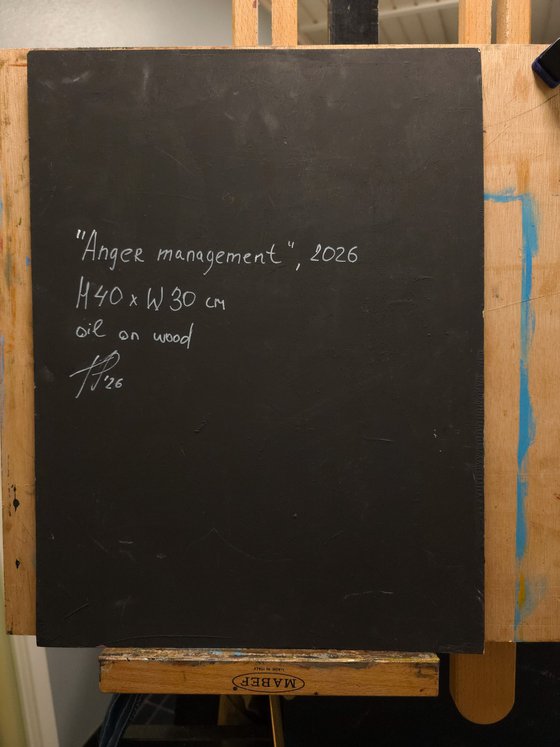 "Anger management", 2026
H40 x W30 cm
oil on wood
'26
MADE IN ITALY
MABEF